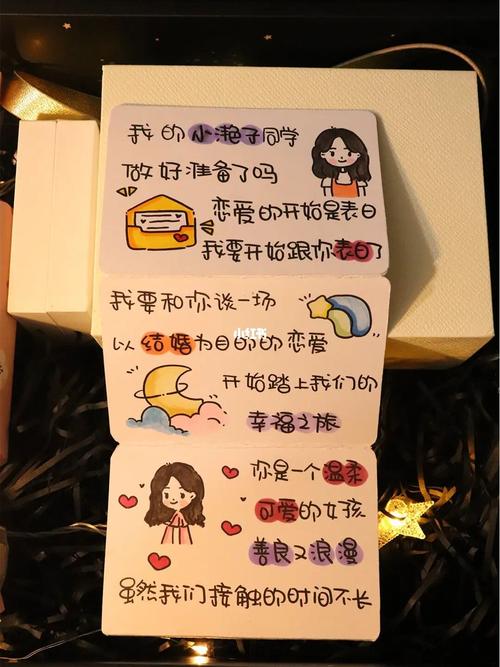 我的小滟子同学
做好准备了吗
恋爱的开始是表白
我要开始跟你表白了
我要和你谈一场
小红书
以结婚为目的的恋爱
开始踏上我们的
幸福之旅
你是一个温柔
可爱的女孩
善良又浪漫
虽然我们接触的时间不长